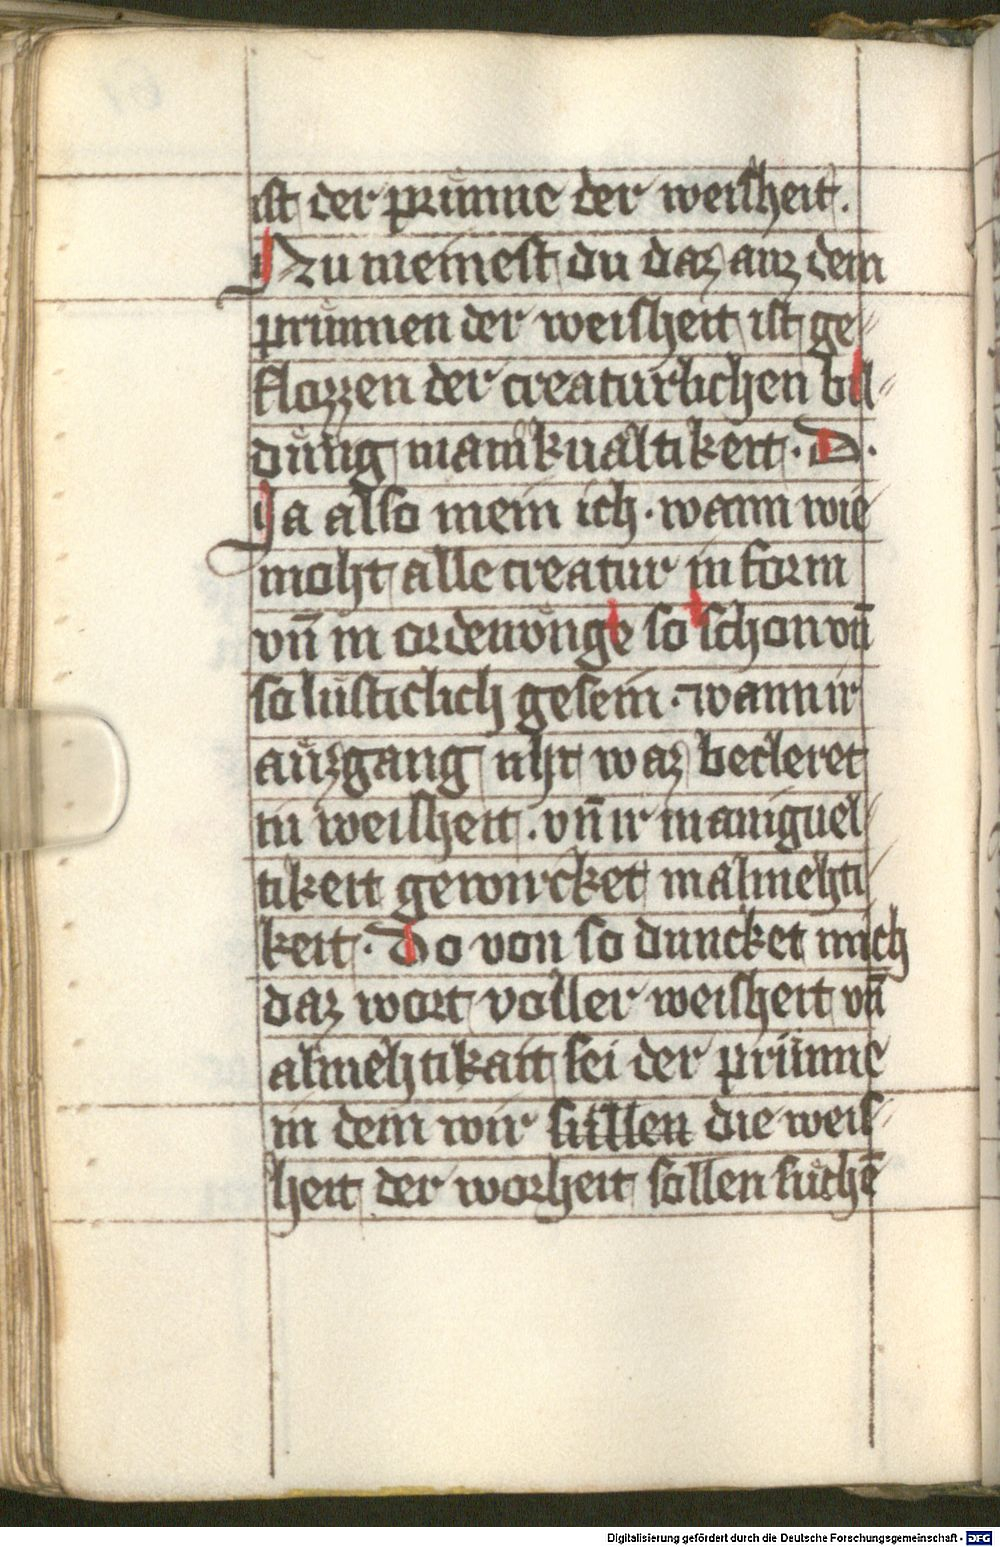 ist der prünne der weisheit.
Jzu meinest du daz auz dem
prünnen der weisheit ist ge⸗
flozzen der creatürlichen bil⸗
düng manikualtikeit · D ·
Ja also mein ich · wann wie
moht alle creatur in form
vn̄ in ordenůnge so schon vn̄
so lüsticlich gesein · wann ir
auzgang niht waz becleret
in weisheit · vn̄ ir maniguel⸗
tikeit gewircket in almehti⸗
keit · Do von so duncket mich
daz wort voller weisheit vn̄
almehtikait sei der prünne
in dem wir süllen die weis⸗
heit der worheit sollen süchē
Digitalisierung gefördert durch die Deutsche Forschungsgemeinschaft - DFG